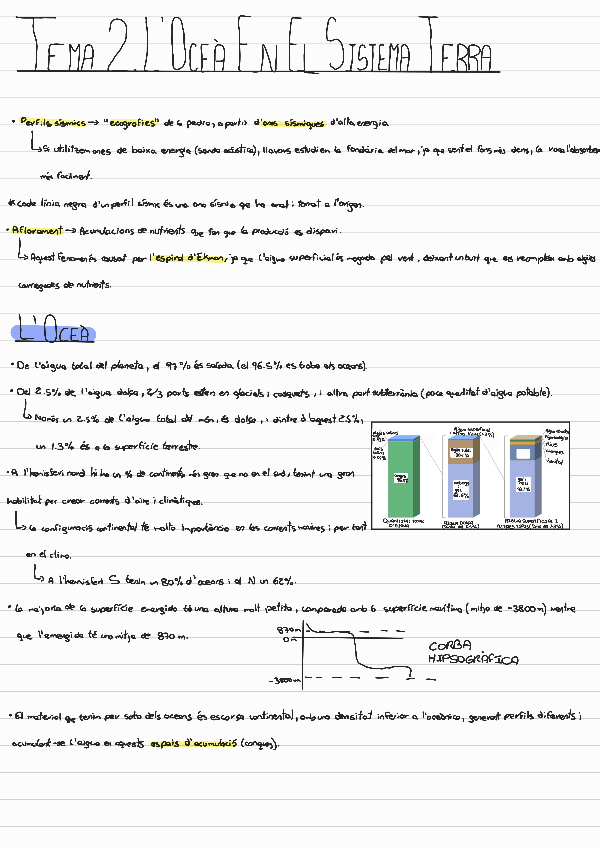 TEMA 2. L'OCEÀ EN EL SISTEMA TERRA
• Perfils sísmics → "ecografies" de la pedra, a partir d'ones sísmiques d'alta energia.
↳ Si utilitzem ones de baixa energia (sonda acústica), llavors estudien la fondària del mar, ja que sent el fons més dens, la roca l'absorbeix
més fàcilment.
* cada línia negra d'un perfil sísmic és una ona sísmica que ha anat i tornat a l'origen.
• Aflorament → Acumulacions de nutrients que fan que la producció es dispari.
↳ Aquest fenomen és causat per l'espiral d'Ekman, ja que l'aigua superficial és moguda pel vent, deixant un buit que es recomplex amb aigües
carregades de nutrients.
L'OCEÀ
• De l'aigua total del planeta, el 97% és salada (el 96.5% es troba als oceans).
• Del 2.5% de l'aigua dolça, 2/3 parts estan en glacials i casquets, i l'altra part subterrània (poca quantitat d'aigua potable).
↳ Només un 2.5% de l'aigua total del món, és dolça, i dintre d'aquest 2.5%,
un 1.3% és a la superfície terrestre.
• A l'hemisferi nord hi ha un % de continents més gran que no en el sud, tenint una gran
habilitat per crear corrents d'aire i climàtiques.
↳ La configuració continental té molta importància en les corrents marines i per tant
en el clima.
↳ A l'hemisferi S tenim un 80% d'oceans i al N un 62%.
• La majoria de la superfície emergida té una altura molt petita, comparada amb la superfície marítima (mitja de -3800m) mentre
que l'emergida té una mitja de 870 m.
870m
0m
-3800m
CORBA
HIPSOGRÀFICA
• El material que tenim per sota dels oceans és escorça continental, amb una densitat inferior a l'oceànica, generant perfils diferents i
acumulant-se l'aigua en aquests espais d'acumulació (conques).